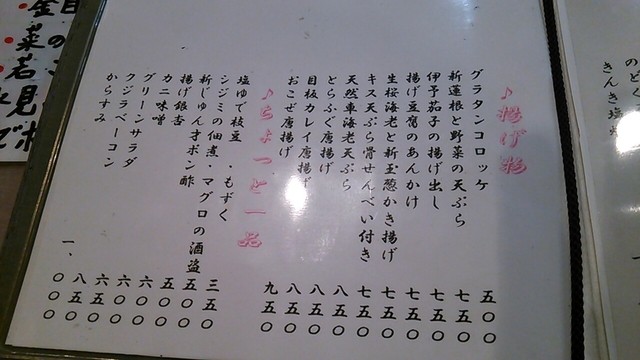 のどく
きんき塩焼
♪揚げ物
グラタンコロッケ 五〇〇
新蓮根と野菜の天ぷら 七五〇
伊予茄子の揚げ出し 七五〇
揚げ豆腐のあんかけ 七五〇
生桜海老と新玉葱かき揚げ 七五〇
キス天ぷら骨せんべい付き 七五〇
天然車海老天ぷら 八五〇
とらふぐ唐揚げ 八五〇
目板カレイ唐揚げ 八五〇
おこぜ唐揚げ 九五〇
♪ちょっと一品
塩ゆで枝豆・もずく 三五〇
シジミの佃煮・マグロの酒盗 五〇〇
新じゅん才ポン酢 五〇〇
揚げ銀杏 六〇〇
カニ味噌 六五〇
グリーンサラダ 六五〇
クジラベーコン 八五〇
からすみ 一、〇〇〇